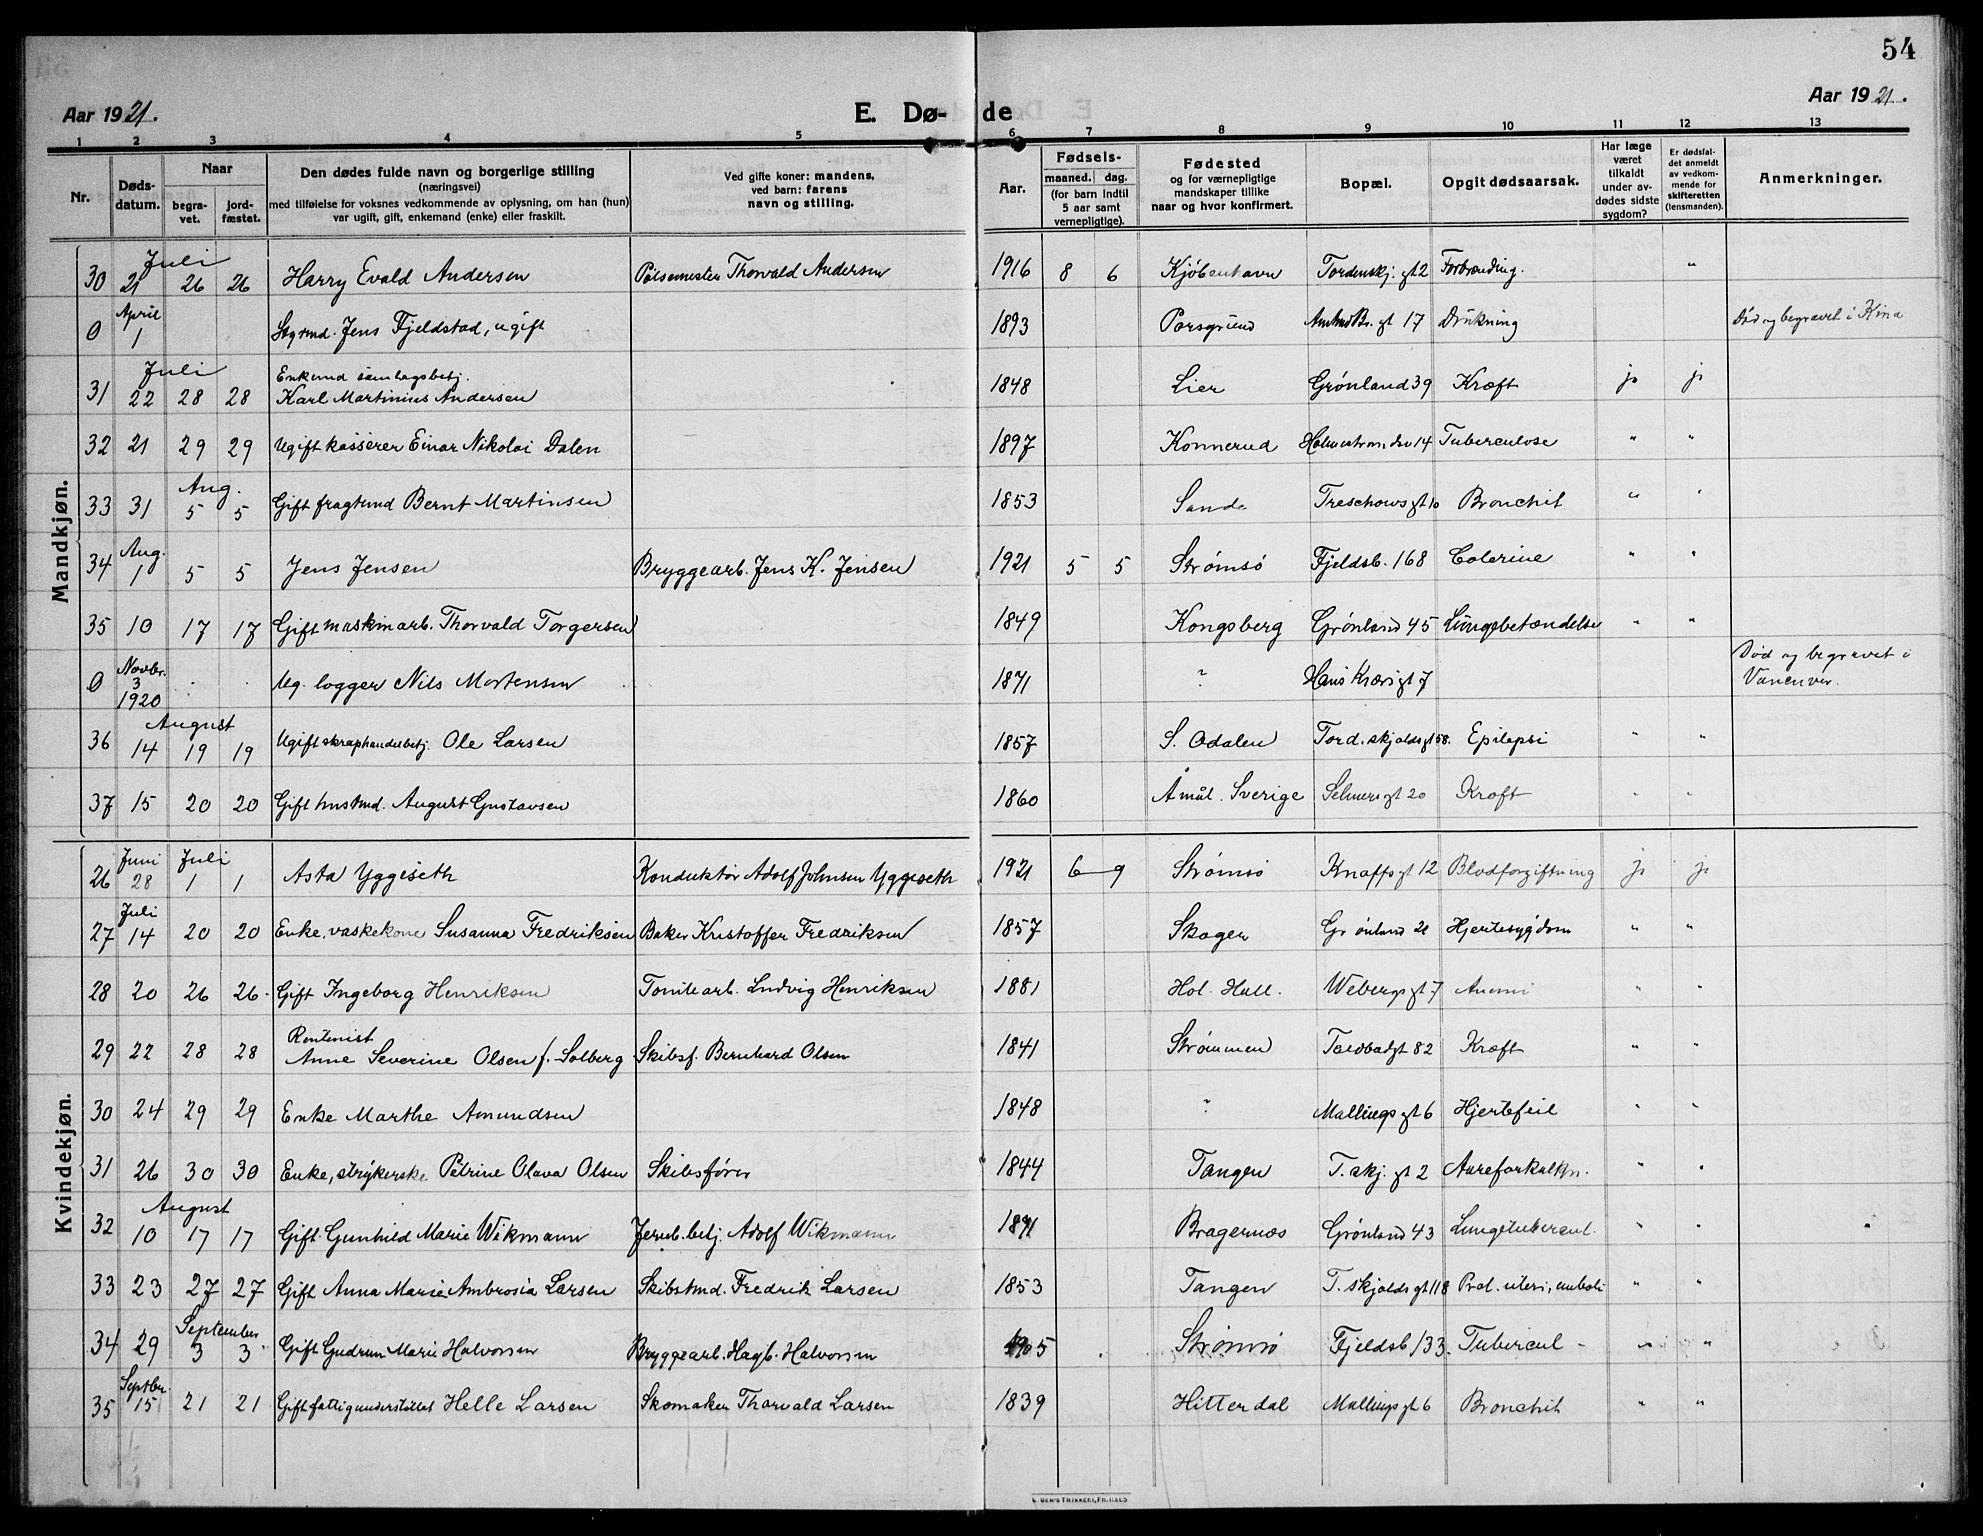 54
Aar 1921.
E. Dø- de
Aar 1921.
1 2 3 4 5 6 7 8 9 10 11 12 13
Nr.
Døds-
datum.
Naar
begra-
vet.
jord-
fæstet.
Den dødes fulde navn og borgerlige stilling
(næringsvei)
med tilføielse for voksnes vedkommende av oplysning, om han (hun)
var ugift, gift, enkemand (enke) eller fraskilt.
Ved gifte koner: mandens,
ved barn: farens
navn og stilling.
Aar.
Fødsels-
maaned. dag.
(for barn indtil
5 aar samt
vernepligtige).
Fødested
og for værnepligtige
mandskaper tillike
naar og hvor konfirmert.
Bopæl.
Opgit dødsaarsak.
Har læge
været
tilkaldt
under av-
dødes sidste
sygdom?
Er dødsfal-
det anmeldt
av vedkom-
mende for
skifteretten
(lensmanden).
Anmerkninger.
Mandkjøn.
Juli
30 21 26 26 Harry Evald Andersen Pølsemester Thorvald Andersen 1916 8 6 Kjøbenhavn Tordenskj. gt 2 Forbrænding. "
April
0 1 Styrmd. Jens Fjeldstad, ugift 1893 Porsgrund gt 17 Drukning Død og begravet i Kina
Juli Enkemd samlagsbetj.
31 22 28 28 Karl Martinius Andersen 1848 Lier Grønland 39 Kræft ja ja
32 21 29 29 Ugift kasserer Einar Nikolai Dalen 1897 Konnerud Holmestrandsv 14 Tuberculose " "
Aug.
33 31 5 5 Gift fragtmd Bernt Martinsen 1853 Sande Treschows gt 10 Bronchit " "
Aug.
34 1 5 5 Jens Jensen Bryggearb. Jens K. Jensen 1921 5 5 Strømsø Fjeldsb. 168 Colerine " "
35 10 17 17 Gift maskinarb. Thorvald Torgersen 1849 Kongsberg Grønland 45 Lungebetændelse " "
Novbr. Død og begravet i
0 3 Ug. logger Nils Mortensen 1871 ? Hans Kiærs gt 7 Vancuver.
1920
August
36 14 19 19 Ugift skraphandelbetj. Ole Larsen 1857 S. Odalen Tord.skjolds gt 58. Epilepsi " "
37 15 20 20 Gift hustmd. August Gustavsen 1860 Åmål. Sverige Selmers gt 20 Kræft " "
Kvindekjøn.
Juni Juli
26 28 1 1 Asta Yggeseth Konduktør Adolf Johnsen Yggeseth 1921 6 9 Strømsø Knoffs gt 12 Blodforgiftning ja ja
Juli
27 14 20 20 Enke, vaskekone Susanna Fredriksen Baker Kristoffer Fredriksen 1857 Skoger Grønland 21 Hjertesygdom " "
28 20 26 26 Gift Ingeborg Henriksen Tomtearb. Ludvig Henriksen 1881 Hol. Hall. Webergs gt 7 Anemi " "
Rentenist
29 22 28 28 Anne Severine Olsen f. Solberg Skibsf. Bernhard Olsen 1841 Strømmen Toldbodgt 82 Kræft " "
30 24 29 29 Enke Marthe Amundsen 1848 ? Mallings gt 6 Hjertefeil " "
31 26 30 30 Enke, strykerske Petrine Olava Olsen Skibsfører 1844 Tangen T. skj. gt 2 Aareforkalkn. " "
August
32 10 17 17 Gift Gunhild Marie Wikmann Jernb.betj. Adolf Wikmann 1871 Bragernæs Grønland 43 Lungetubercul. " "
33 23 27 27 Gift Anna Marie Ambrosia Larsen Skibstmd. Fredrik Larsen 1853 Tangen T. skjolds gt 118 Prol. uteri, emboli " "
September
34 29 3 3 Gift Gudrun Marie Halvorsen Bryggearb. Hagb. Halvorsen 1905 Strømsø Fjeldsb 133. Tubercul - " "
Septbr.
35 15 21 21 Gift fattigunderstøttet Helle Larsen Skomaker Thorvald Larsen 1839 Hitterdal Mallings gt 6 Bronchit " "